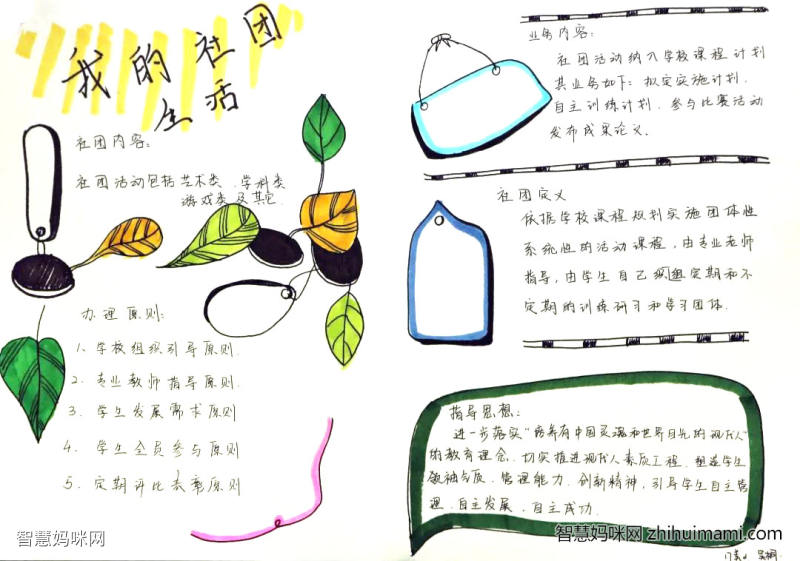 我的社团
生活
社团内容：
社团活动包括艺术类、学科类
游戏类及其它
办理原则：
1、学校组织引导原则
2、专业教师指导原则
3、学生发展需求原则
4、学生全员参与原则
5、定期评比表彰原则
业务内容：
社团活动纳入学校课程计划
其业务如下：拟定实施计划．
自主训练计划．参与比赛活动
发布成果论文。
社团定义
依据学校课程规划实施团体性
系统性的活动课程，由专业老师
指导，由学生自己组定期和不
定期的训练研习和学习团体．
指导思想：
进一步落实“培养有中国灵魂和世界目光的现代人”
的教育理念．切实推进现代人素质工程．塑造学生
领袖气质．管理能力．创新精神，引导学生自主管
理．自主发展．自主成功．
智慧妈咪网
智慧妈咪网 zhihuimami.com